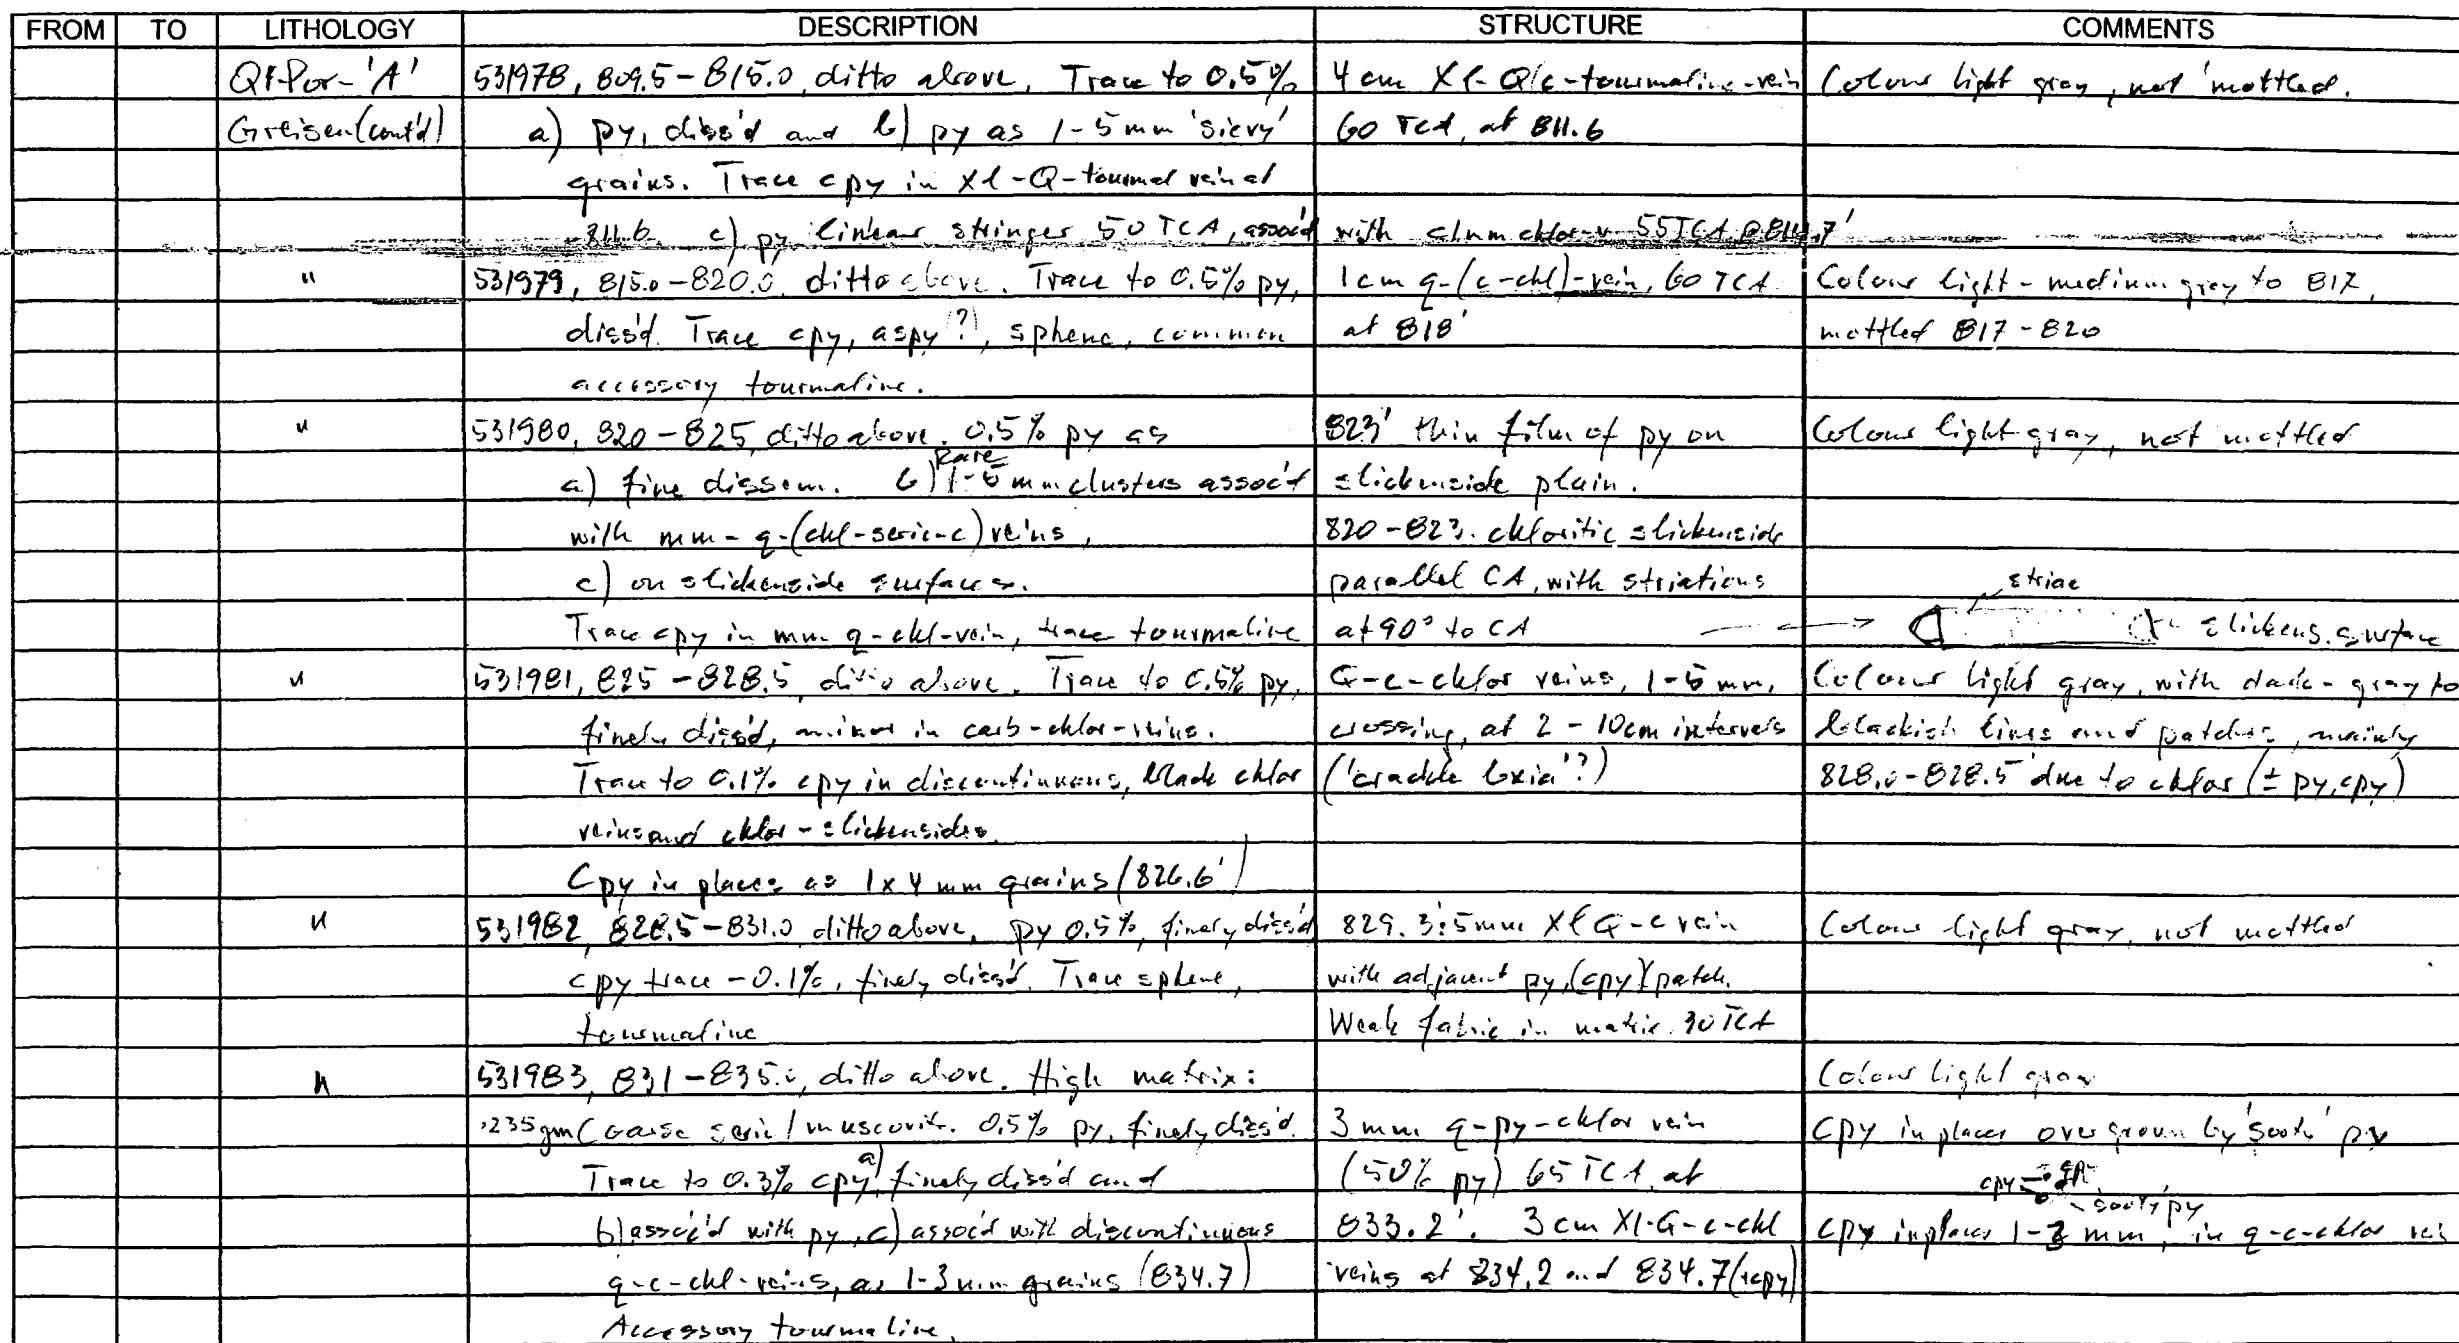 FROM TO LITHOLOGY DESCRIPTION STRUCTURE COMMENTS
Qf-Por-'A' 531978, 809.5-815.0, ditto above. Trace to 0.5% 4 cm Xl-Q/c-tourmaline-vein Colour light gray, not 'mottled.
Greisen (cont'd) a) py, diss'd and b) py as 1-5 mm 'sievy' 60 TCA, at 811.6
grains. Trace cpy in Xl-Q-tourmal vein at
811.6 c) py linear stringer 50 TCA, assoc'd with chlor-v 55TCA @ 814.7'
" 531979, 815.0-820.0, ditto above. Trace to 0.5% py, 1 cm q-(c-chl)-vein, 60 TCA Colour light-medium grey to 817,
diss'd. Trace cpy, aspy?, sphene, common at 818' mottled 817-820
accessory tourmaline.
" 531980, 820-825, ditto above. 0.5% py as 823' thin film of py on Colour light gray, not mottled
a) fine dissem. b) Rare 1-5 mm clusters assoc'd slickenside plain.
with mm-q-(chl-seric-c) veins, 820-823. chloritic slickenside
c) on slickenside surfaces. parallel CA, with striations striae
Trace cpy in mm q-chl-vein, trace tourmaline at 90° to CA slickens. surface
" 531981, 825-828.5, ditto above. Trace to 0.5% py, Q-c-chlor veins, 1-5 mm, Colour light gray, with dark-gray to
finely diss'd, minor in carb-chlor-veins. crossing, at 2-10cm intervals blackish lines and patches, mainly
Trace to 0.1% cpy in discontinuous, black chlor ('crackle bxia'?) 828.0-828.5 due to chlor (± py, cpy)
veins and chlor-slickensides.
Cpy in places as 1x4 mm grains (826.6')
" 531982, 828.5-831.0, ditto above. py 0.5%, finely diss'd 829.3: 5mm Xl Q-c vein Colour light gray, not mottled
cpy trace-0.1%, finely diss'd. Trace sphene, with adjacent py, (cpy) patch.
tourmaline Weak fabric in matrix 30 TCA
" 531983, 831-835.0, ditto above. High matrix: Colour light gray
.235gm Coarse seric/muscovit. 0.5% py, finely diss'd. 3 mm q-py-chlor vein cpy in places overgrown by 'sooty' py
Trace to 0.3% cpy a) finely diss'd and (50% py) 65 TCA, at cpy
b) assoc'd with py, c) assoc'd with discontinuous 833.2'. 3 cm Xl-Q-c-chl sooty py
q-c-chl-veins, as 1-3 mm grains (834.7) veins at 834.2 and 834.7 (+cpy) cpy in places 1-3 mm, in q-c-chlor vein
Accessory tourmaline.